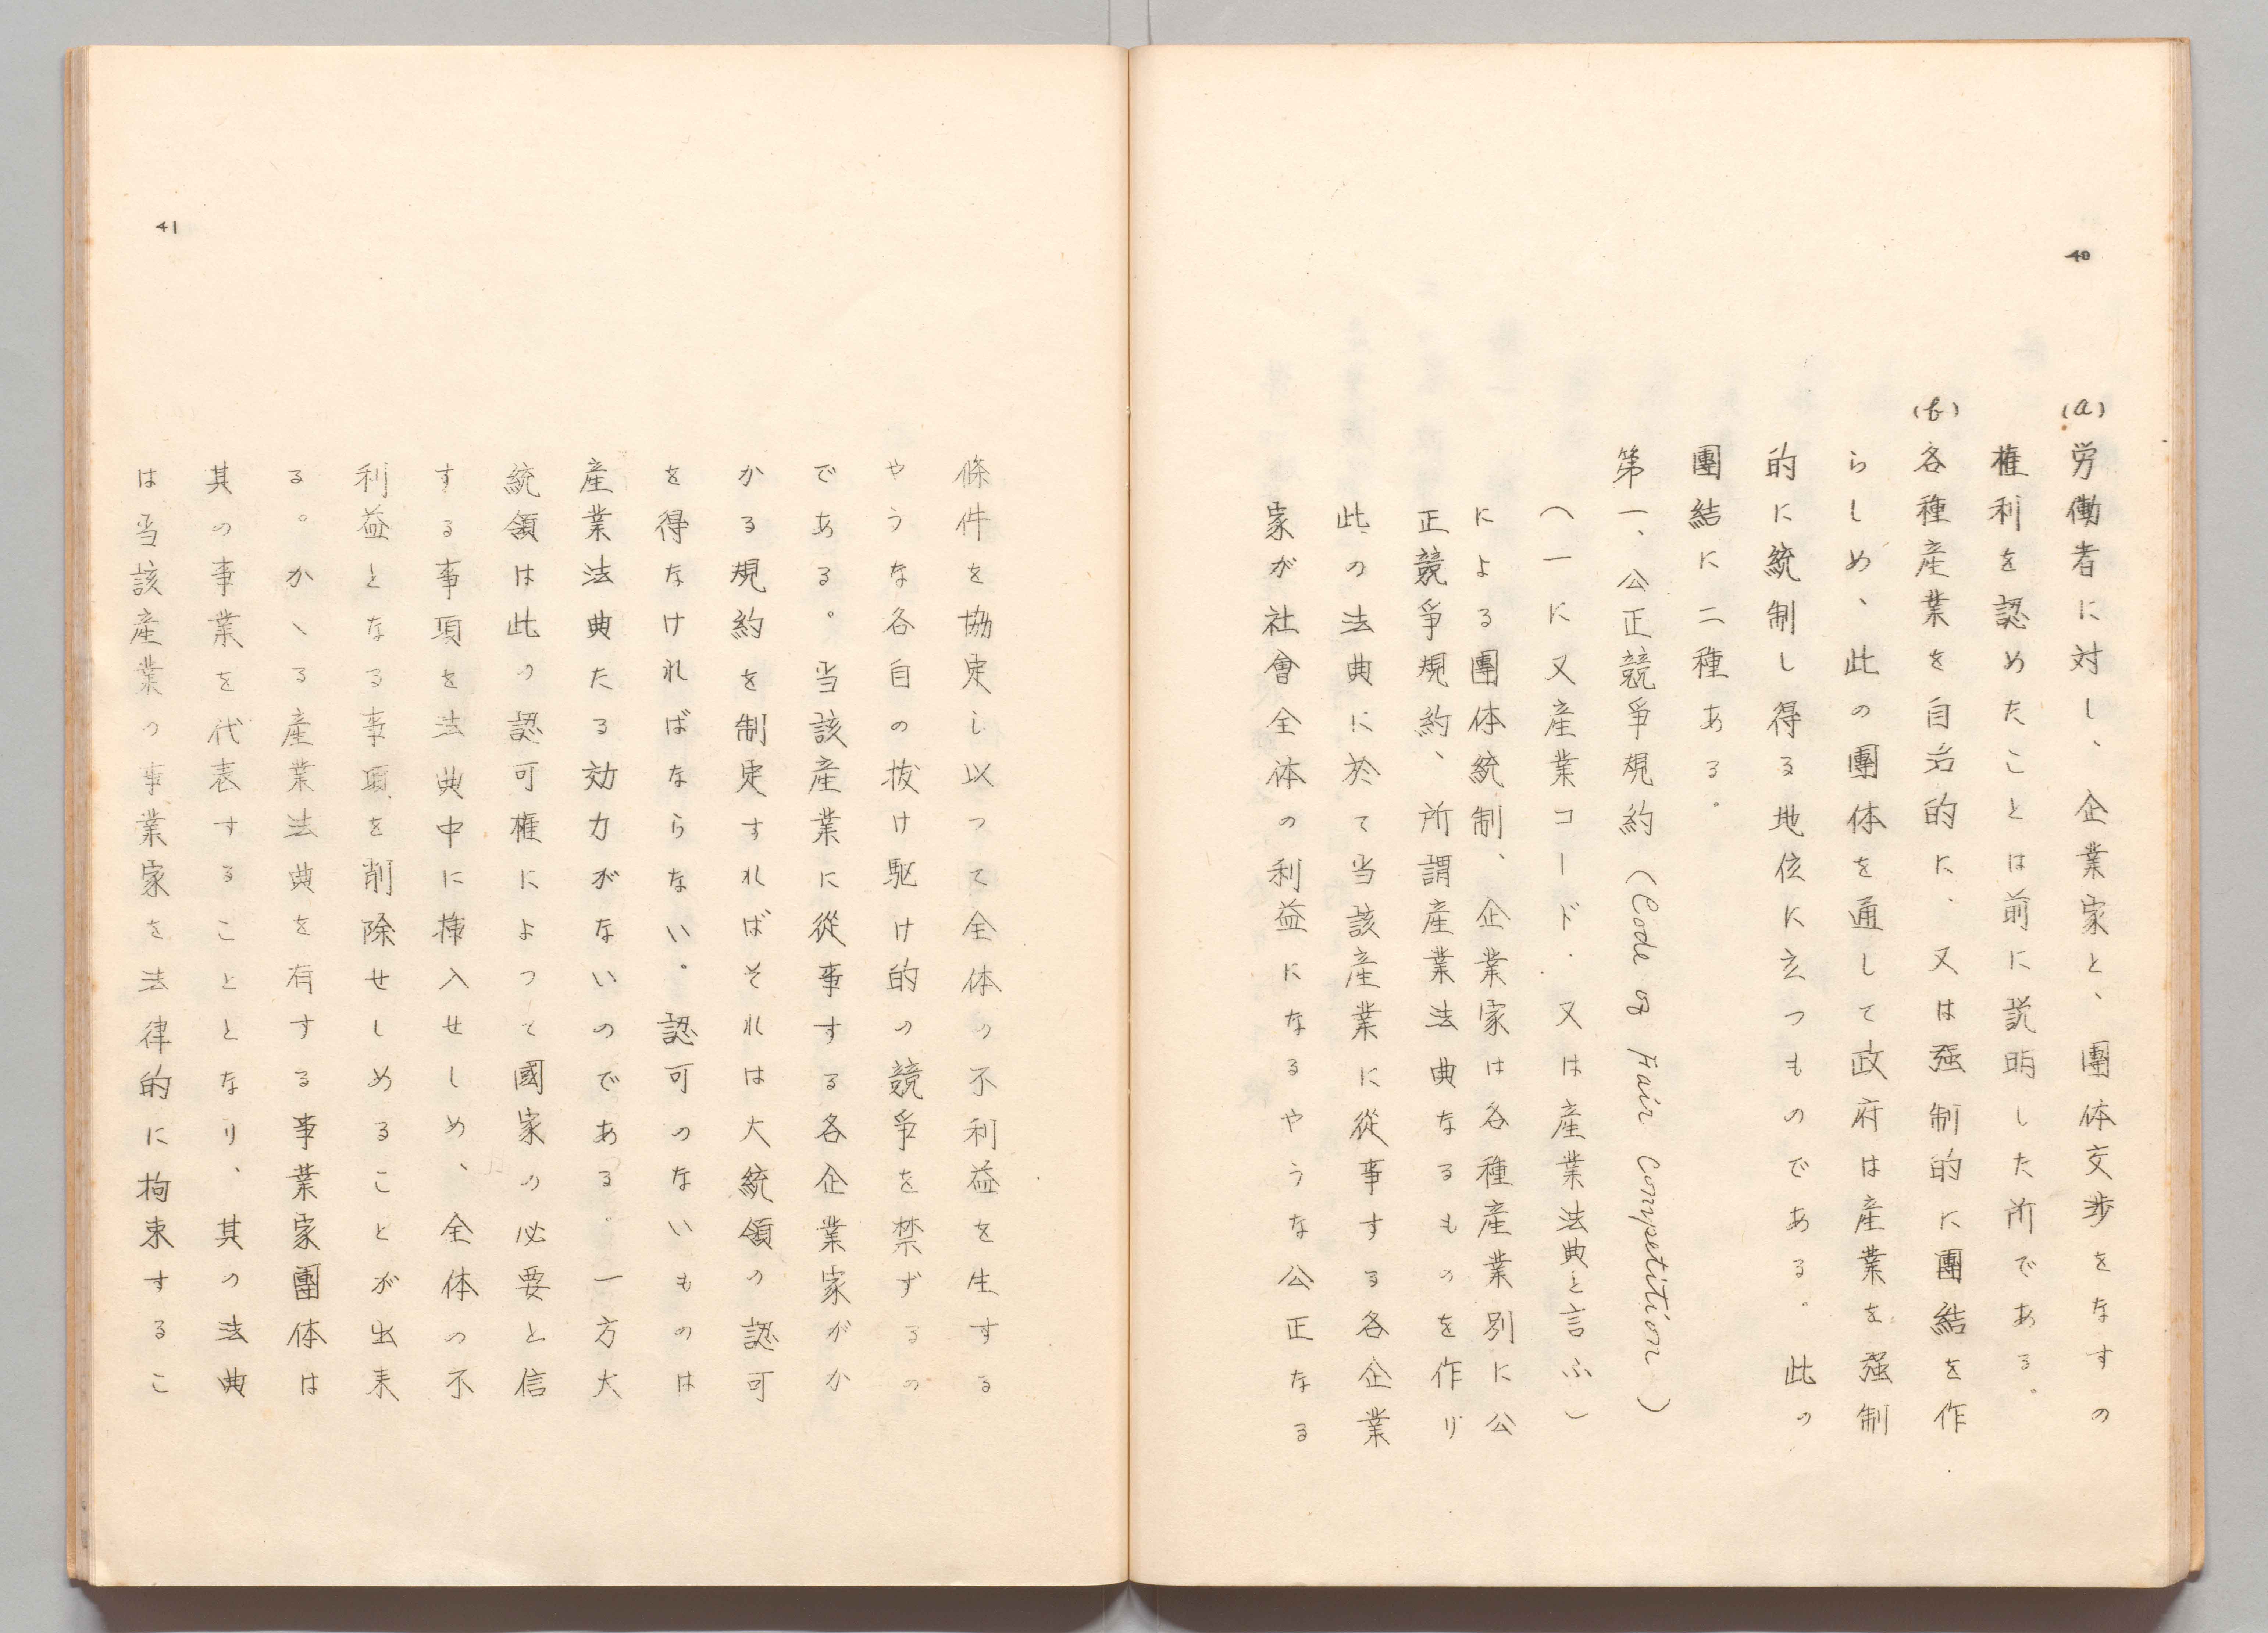 40
(a)労働者に対し、企業家と、團体交渉をなすの
権利を認めたことは前に説明した所である。
(b)各種産業を自治的に、又は强制的に團結を作
らしめ、此の團体を通して政府は産業を强制
的に統制し得る地位に立つものである。此の
團結に二種ある。
第一、公正競爭規約(Code of Fair Competition)
(一に又産業コード、又は産業法典と言ふ)
による團体統制、企業家は各種産業別に公
正競爭規約、所謂産業法典なるものを作り
此の法典に於て当該産業に從事する各企業
家が社會全体の利益になるやうな公正なる
41
條件を協定し以つて全体の不利益を生する
やうな各自の抜け駈け的の競爭を禁ずるの
である。当該産業に從事する各企業家がか
かる規約を制定すればそれは大統領の認可
を得なければならない。認可のないものは
産業法典たる効力がないのである。一方大
統領は此の認可権によつて國家の必要と信
する事項を法典中に挿入せしめ、全体の不
利益となる事項を削除せしめることが出来
る。かゝる産業法典を有する事業家團体は
其の事業を代表することとなり、其の法典
は当該産業の事業家を法律的に拘束するこ